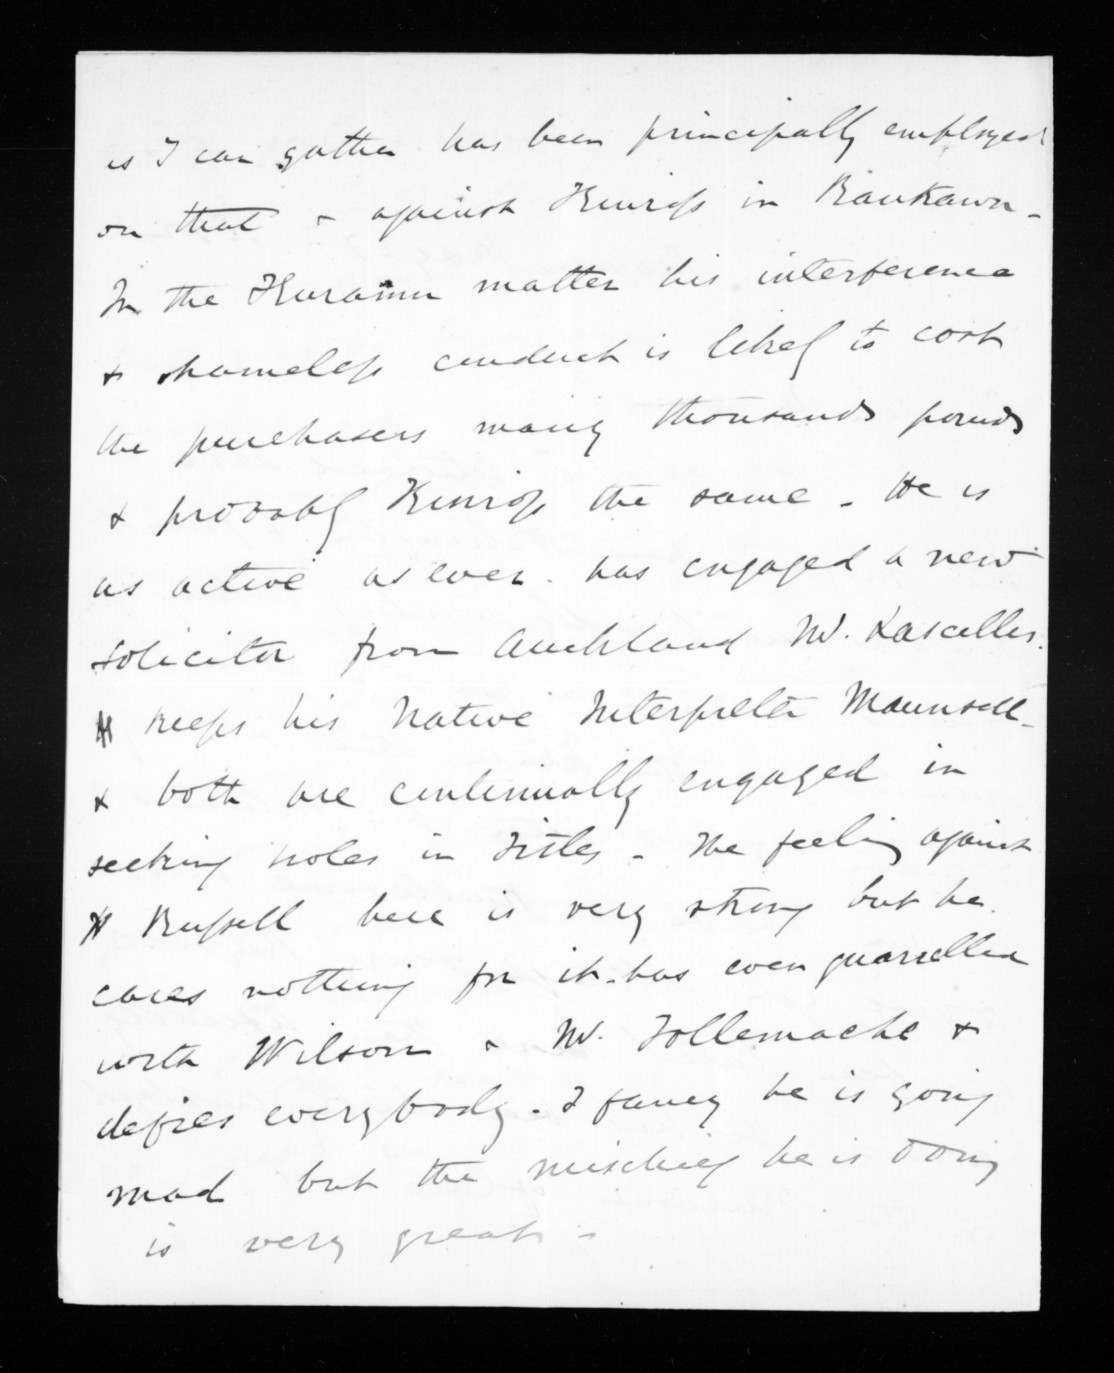 as I can gather has been principally employed
on that & against Kinross in Raukawa -
In the Kuramu matter his interference
& shameless conduct is likely to cost
the purchasers many thousands pounds
& probably Kinross the same - He is
as active as ever. has engaged a new
solicitor from Auckland Mr. Lascelles.
H keeps his Native Interpreter Maunsell -
& both are continually engaged in
seeking holes in Titles - The feeling against
H Russell here is very strong but he
cares nothing for it. has even quarrelled
with Wilson & Mr. Tollemache &
defies everybody. I fancy he is going
mad but the mischief he is doing
is very great -